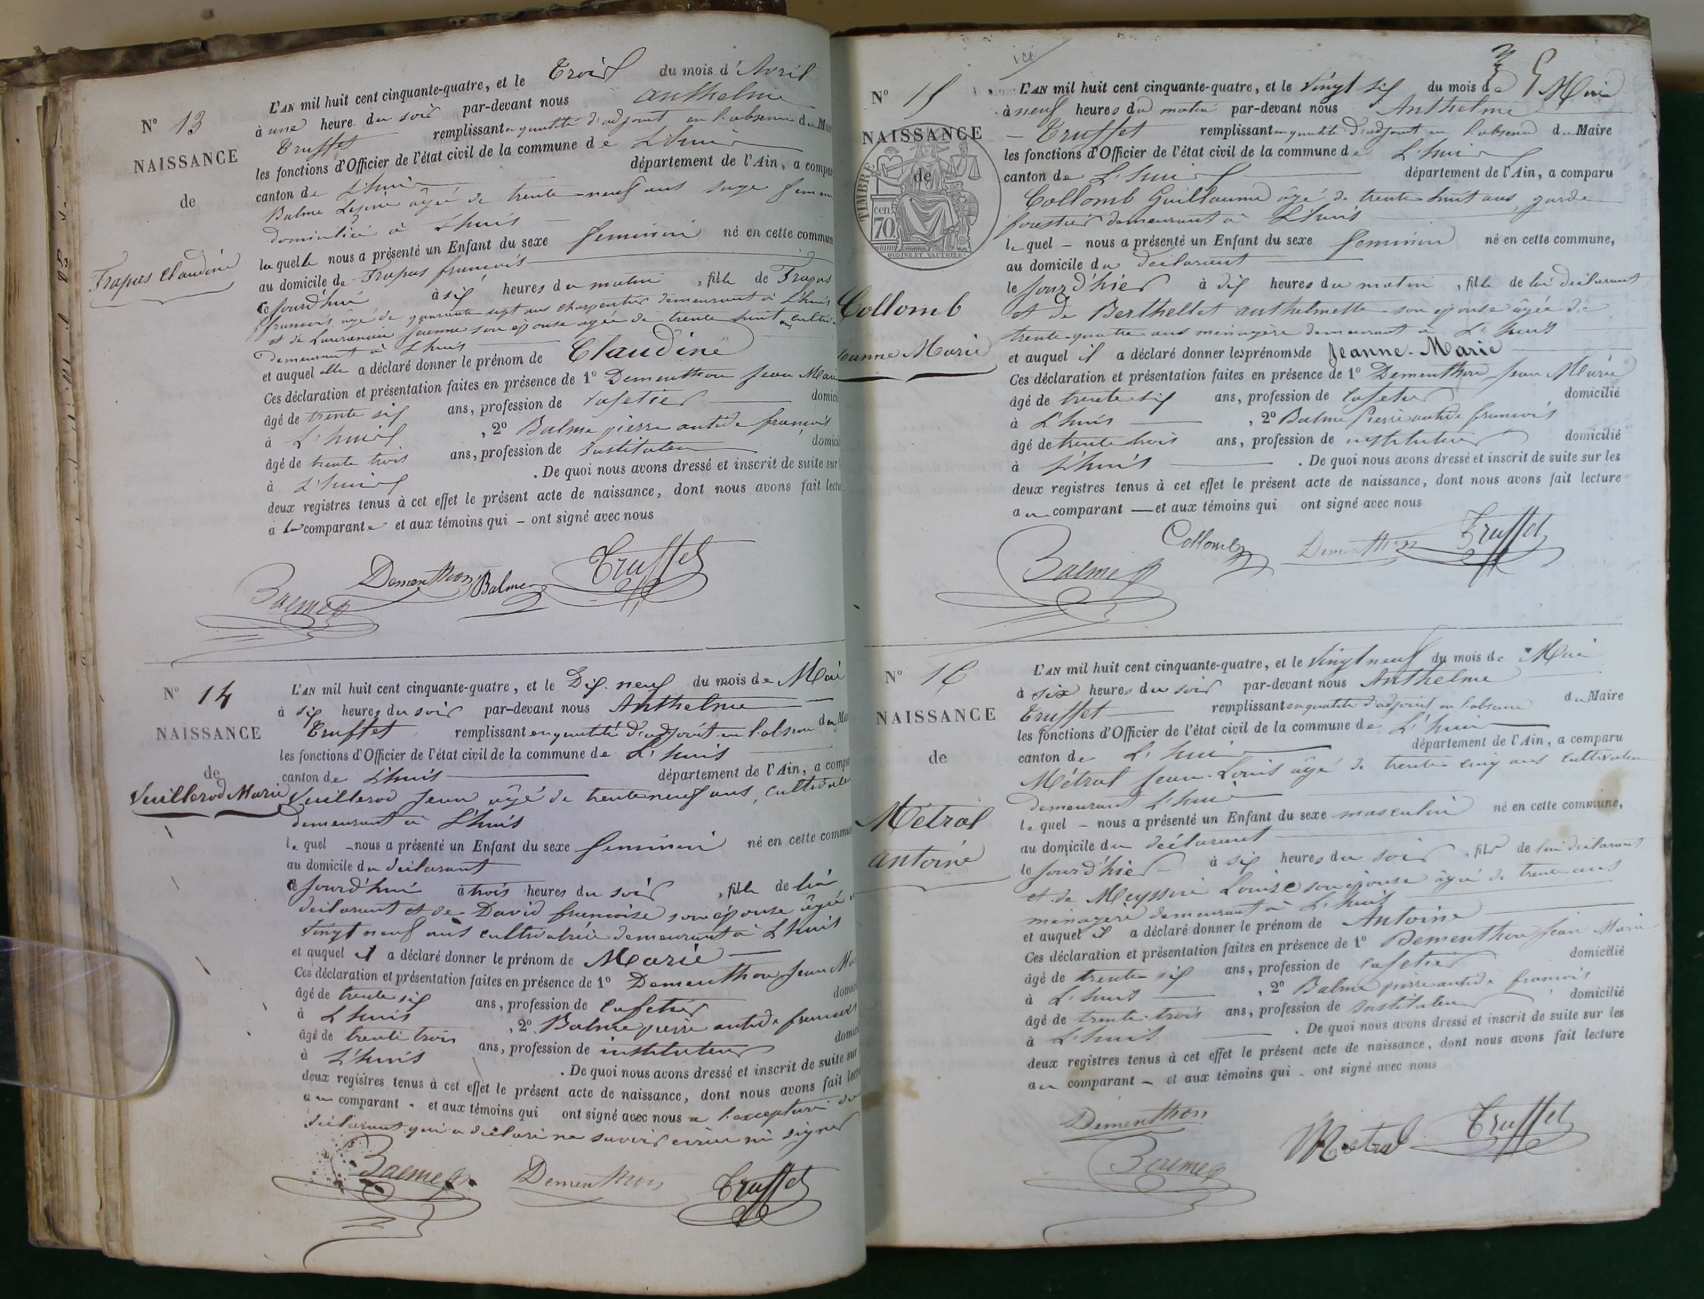 N° 13
NAISSANCE
de
Trapas Claudine
L'AN mil huit cent cinquante-quatre, et le Trois du mois d'Avril
à une heure du soir par-devant nous anthelme
Truffet remplissant en qualité d'adjoint en l'absence du Maire
les fonctions d'Officier de l'état civil de la commune de L'huis
canton de L'huis département de l'Ain, a comparu
Balme âgée de trente-neuf ans sage femme
domiciliée à L'huis
laquelle nous a présenté un Enfant du sexe féminin né en cette commune
au domicile de Trapas françois
ce jourd'hui à six heures du matin, fille de Trapas
françois âgé de quarante sept ans charpentier demeurant à L'huis
et de Jeanne son épouse agée de trente huit ans
demeurant à L'huis
et auquel elle a déclaré donner le prénom de Claudine
Ces déclaration et présentation faites en présence de 1° Dementhon Jean Marie
âgé de trente six ans, profession de cafetier domicilié
à L'huis, 2° Balme pierre antide françois
âgé de trente trois ans, profession de Instituteur domicilié
à L'huis. De quoi nous avons dressé et inscrit de suite sur
deux registres tenus à cet effet le présent acte de naissance, dont nous avons fait lecture
à la comparante et aux témoins qui ont signé avec nous
Dementhon Balme Truffet
Balme
N° 14
NAISSANCE
de
Vuillerod Marie
L'AN mil huit cent cinquante-quatre, et le Dix-neuf du mois de Mai
à six heures du soir par-devant nous Anthelme
Truffet remplissant en qualité d'adjoint en l'absence du Maire
les fonctions d'Officier de l'état civil de la commune de L'huis
canton de L'huis département de l'Ain, a comparu
Vuillerod Jean âgé de trente neuf ans, cultivateur
demeurant à L'huis
lequel nous a présenté un Enfant du sexe féminin né en cette commune
au domicile du déclarant
ce jourd'hui à trois heures du soir, fille de lui
déclarant et de David françoise son épouse âgée de
vingt neuf ans cultivatrice demeurant à L'huis
et auquel il a déclaré donner le prénom de Marie
Ces déclaration et présentation faites en présence de 1° Dementhon Jean Marie
âgé de trente six ans, profession de cafetier domicilié
à L'huis, 2° Balme pierre antide françois
âgé de trente trois ans, profession de instituteur domicilié
à L'huis. De quoi nous avons dressé et inscrit de suite sur
deux registres tenus à cet effet le présent acte de naissance, dont nous avons fait lecture
au comparant et aux témoins qui ont signé avec nous à l'exception du
déclarant qui a déclaré ne savoir écrire ni signer
Balme Dementhon Truffet
N° 15
NAISSANCE
de
TIMBRE
70 cen.
Collomb
Jeanne Marie
L'AN mil huit cent cinquante-quatre, et le vingt six du mois de Mai
à neuf heures du matin par-devant nous Anthelme
Truffet remplissant en qualité d'adjoint en l'absence du Maire
les fonctions d'Officier de l'état civil de la commune de L'huis
canton de L'huis département de l'Ain, a comparu
Collomb Guillaume âgé de trente huit ans, garde
foustier demeurant à L'huis
lequel nous a présenté un Enfant du sexe féminin né en cette commune,
au domicile du déclarant
le jour d'hier à dix heures du matin, fille de lui déclarant
et de Berthellet anthelmette son épouse âgée de
trente-quatre ans ménagère demeurant à L'huis
et auquel il a déclaré donner les prénoms de Jeanne-Marie
Ces déclaration et présentation faites en présence de 1° Dementhon Jean Marie
âgé de trente six ans, profession de cafetier domicilié
à L'huis, 2° Balme Pierre antide françois
âgé de trente trois ans, profession de instituteur domicilié
à L'huis. De quoi nous avons dressé et inscrit de suite sur les
deux registres tenus à cet effet le présent acte de naissance, dont nous avons fait lecture
au comparant et aux témoins qui ont signé avec nous
Collomb Dementhon Truffet
Balme
N° 16
NAISSANCE
de
Métral
antoine
L'AN mil huit cent cinquante-quatre, et le vingt neuf du mois de Mai
à six heures du soir par-devant nous Anthelme
Truffet remplissant en qualité d'adjoint en l'absence du Maire
les fonctions d'Officier de l'état civil de la commune de L'huis
canton de L'huis département de l'Ain, a comparu
Métral Jean-Louis âgé de trente cinq ans cultivateur
demeurant L'huis
lequel nous a présenté un Enfant du sexe masculin né en cette commune,
au domicile du déclarant
le jour d'hier à six heures du soir, fils de lui déclarant
et de Louise son épouse âgée de trente ans
ménagère demeurant à L'huis
et auquel il a déclaré donner le prénom de Antoine
Ces déclaration et présentation faites en présence de 1° Dementhon Jean Marie
âgé de trente six ans, profession de cafetier domicilié
à L'huis, 2° Balme pierre antide françois
âgé de trente-trois ans, profession de Instituteur domicilié
à L'huis. De quoi nous avons dressé et inscrit de suite sur les
deux registres tenus à cet effet le présent acte de naissance, dont nous avons fait lecture
au comparant et aux témoins qui ont signé avec nous
Dementhon
Balme Métral Truffet